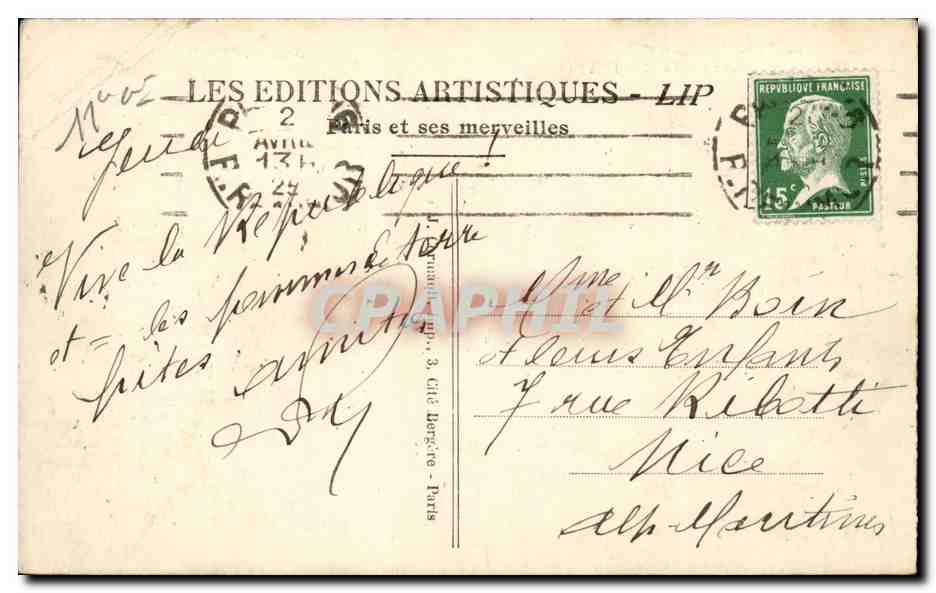 LES EDITIONS ARTISTIQUES - LIP
Paris et ses merveilles
REPVBLIQUE FRANÇAISE
POSTES
15c
PASTEUR
2
AVRIL
13H
25
Jeudi
Vive la République !
et = les pommes de terre
frites
amitiés
Imp., 3, Cité Bergère - Paris
CPAPHIL
Mme et Mr Boin
et leurs Enfants
7 rue Ribotti
Nice
Alp-Maritimes